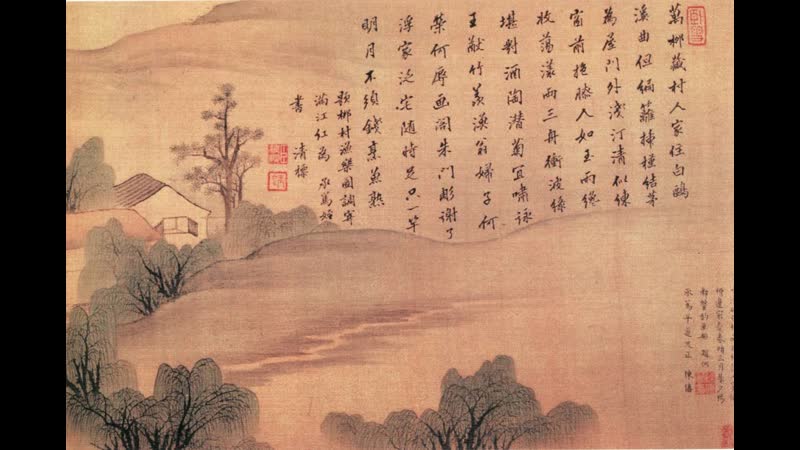 萬柳藏村人家住白鷗
溪曲但編蘿插槿結茅
為屋門外淺汀清似練
窗前抱膝人如玉雨纔
收蕩漾兩三舟衝波綠
堪對酒陶潛菊宜嘯詠
王猷竹羨漁翁婦子何
榮何辱畫閣朱門彫謝了
浮家泛宅隨時足只一竿
明月不須錢烹蒸熟
題柳村漁樂圖調寄
滿江紅為 承篤姪
書 清標